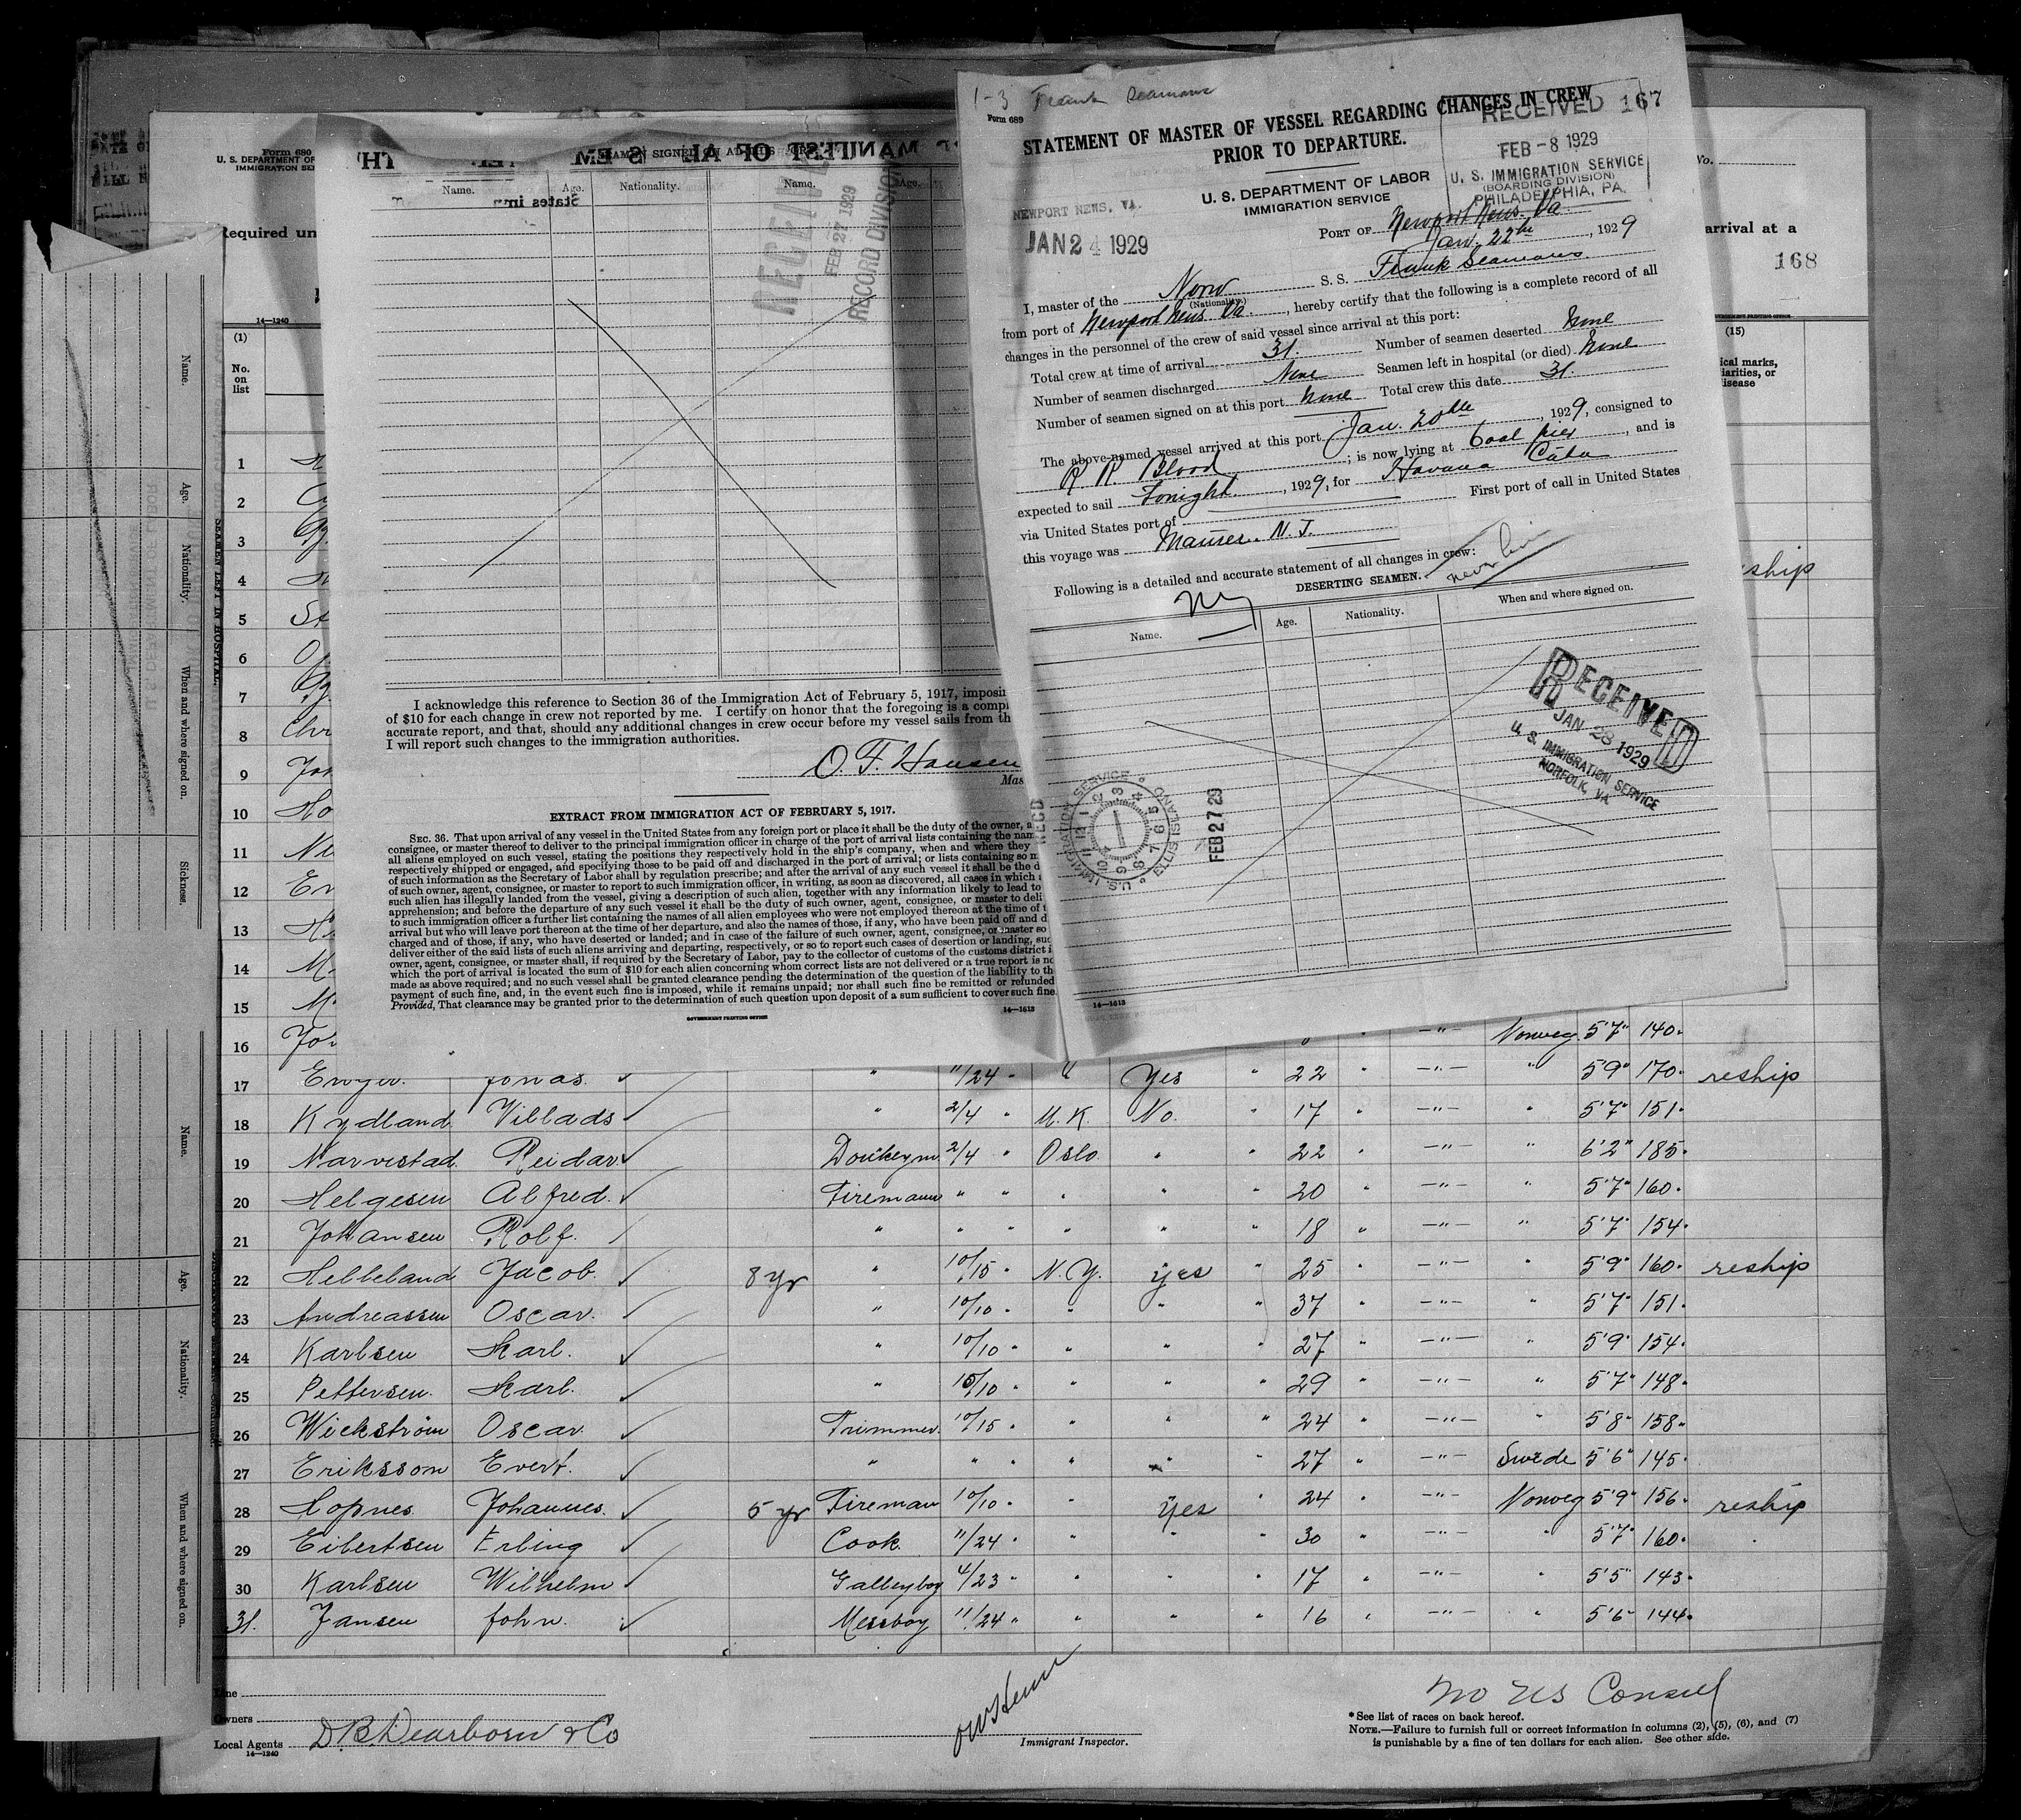 1-3 Frank Seamans
Form 689
STATEMENT OF MASTER OF VESSEL REGARDING CHANGES IN CREW
PRIOR TO DEPARTURE.
RECEIVED 167
FEB -8 1929
U. S. IMMIGRATION SERVICE
(BOARDING DIVISION)
PHILADELPHIA, PA.
U. S. DEPARTMENT OF LABOR
IMMIGRATION SERVICE
NEWPORT NEWS, VA.
JAN 24 1929
PORT OF Newport News. Va
Jan. 22th, 1929
I, master of the Norw S. S. Frank Seamans.
(Nationality.)
from port of Newport News Va., hereby certify that the following is a complete record of all
changes in the personnel of the crew of said vessel since arrival at this port:
Total crew at time of arrival 31. Number of seamen deserted None
Number of seamen discharged None Seamen left in hospital (or died) None
Number of seamen signed on at this port None Total crew this date 31.
The above-named vessel arrived at this port Jan. 20th, 1929, consigned to
R R Blood; is now lying at Coal pier, and is
expected to sail Tonight., 1929, for Havana Cuba
via United States port of First port of call in United States
this voyage was Maurer. N. J.
Following is a detailed and accurate statement of all changes in crew:
DESERTING SEAMEN.
Name. Age. Nationality. When and where signed on.
RECEIVED
JAN 28 1929
U. S. IMMIGRATION SERVICE
NORFOLK, VA
U.S. IMMIGRATION SERVICE ELLIS ISLAND
REC'D
FEB 27 29
14—1613
SEAMEN SIGNED ON AT THIS
Name. Age. Nationality. Name. Age.
RECEIVED
FEB 27 1929
RECORD DIVISION
I acknowledge this reference to Section 36 of the Immigration Act of February 5, 1917, imposin
of $10 for each change in crew not reported by me. I certify on honor that the foregoing is a compl
accurate report, and that, should any additional changes in crew occur before my vessel sails from th
I will report such changes to the immigration authorities.
O. F. Hansen
Mas
EXTRACT FROM IMMIGRATION ACT OF FEBRUARY 5, 1917.
SEC. 36. That upon arrival of any vessel in the United States from any foreign port or place it shall be the duty of the owner, a
consignee, or master thereof to deliver to the principal immigration officer in charge of the port of arrival lists containing the nam
all aliens employed on such vessel, stating the positions they respectively hold in the ship's company, when and where they
respectively shipped or engaged, and specifying those to be paid off and discharged in the port of arrival; or lists containing so m
of such information as the Secretary of Labor shall by regulation prescribe; and after the arrival of any such vessel it shall be the d
of such owner, agent, consignee, or master to report to such immigration officer, in writing, as soon as discovered, all cases in which
such alien has illegally landed from the vessel, giving a description of such alien, together with any information likely to lead to
apprehension; and before the departure of any such vessel it shall be the duty of such owner, agent, consignee, or master to deli
to such immigration officer a further list containing the names of all alien employees who were not employed thereon at the time of t
arrival but who will leave port thereon at the time of her departure, and also the names of those, if any, who have been paid off and d
charged and of those, if any, who have deserted or landed; and in case of the failure of such owner, agent, consignee, or master so
deliver either of the said lists of such aliens arriving and departing, respectively, or so to report such cases of desertion or landing, suc
owner, agent, consignee, or master shall, if required by the Secretary of Labor, pay to the collector of customs of the customs district i
which the port of arrival is located the sum of $10 for each alien concerning whom correct lists are not delivered or a true report is no
made as above required; and no such vessel shall be granted clearance pending the determination of the question of the liability to th
payment of such fine, and, in the event such fine is imposed, while it remains unpaid; nor shall such fine be remitted or refunded
Provided, That clearance may be granted prior to the determination of such question upon deposit of a sum sufficient to cover such fine
GOVERNMENT PRINTING OFFICE
14—1613
Form 680
U. S. DEPARTMENT OF
IMMIGRATION SE
Required un
14—1240
No.
arrival at a
168
(1)
No.
on
list
(15)
ical marks,
iarities, or
isease
1
2
3
4 ship
5 St
6
7
8 Chr
9
10 Ho
11
12
13
14 M
15 M
16 Norweg. 5'7" 140
17 Jonas. " 11/24 " " Yes " 22 " -"- " 5'9" 170 reship
18 Kydland Villads " 2/4 " U.K. No. 17 " -"- " 5'7" 151
19 Narvestad Reidar Donkeym 2/4 " Oslo " 22 " -"- " 6'2" 185
20 Helgesen Alfred. Firemann " " " " " 20 " -"- " 5'7" 160
21 Johansen Rolf. " " " " " " 18 " -"- " 5'7" 154
22 Helleland Jacob. 8 yr " 10/15 " N.Y. yes " 25 " -"- " 5'9" 160 reship
23 Andreassen Oscar. " 10/10 " " " " 37 " -"- " 5'7" 151
24 Karlsen Karl. " 10/10 " " " " 27 " -"- " 5'9" 154
25 Pettersen. Karl. " 10/10 " " " " 29 " -"- " 5'7" 148
26 Wickström Oscar Trimmer. 10/15 " " " " 24 " -"- " 5'8" 158
27 Eriksson Evert. " " " " " " 27 " -"- Swede 5'6" 145
28 Hopnes Johannes. 5 yr Fireman 10/10 " " yes " 24 " -"- Norweg 5'9" 156 reship
29 Eilertsen Erling Cook. 11/24 " " " " 30 " -"- " 5'7" 160
30 Karlsen Wilhelm Galleyboy 4/23 " " " " 17 " -"- " 5'5" 143
31. Jansen John. Messboy 11/24 " " " " 16 " -"- " 5'6" 144
Line
Owners
Local Agents D.B. Dearborn & Co
14—1240
Immigrant Inspector.
No US Consul
* See list of races on back hereof.
NOTE.—Failure to furnish full or correct information in columns (2), (5), (6), and (7)
is punishable by a fine of ten dollars for each alien. See other side.
Name.
Age.
Nationality.
When and where signed on.
Sickness.
SEAMEN LEFT IN HOSPITAL.
Name.
Age.
Nationality.
When and where signed on.